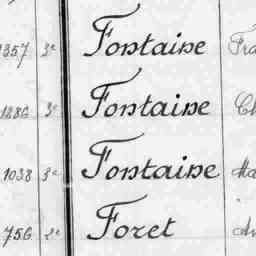 1357 3e Fontaine Fra
1886 3e Fontaine Ch
1038 3e Fontaine Ma
756 2e Foret